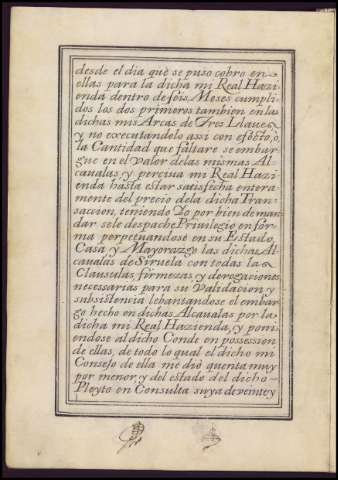 desde el dia que se puso cobro en
ellas para la dicha mi Real Hazi
enda dentro de seis Meses cumpli
dos los dos primeros tambien en las
dichas mis Arcas de Tres Llaues
y no executandolo assi con efecto, o
la Cantidad que faltare se embar
gue en el valor delas mismas Al
caualas y perciua mi Real Hazi
enda hasta estar satisfecha entera
mente del precio dela dicha Tran
saccion, teniendo Yo por bien deman
dar sele despache Priuilegio en for
ma perpetuandose en su Estado
Casa y Mayorazgo las dichas Al
caualas de Siruela con todas las
Clausulas, firmezas, y derogaciones
necessarias para su Validacion y
subsistencia lebantandose el embar
go hecho en dichas Alcaualas por la
dicha mi Real Hazienda, y poni
endose al dicho Conde en possession
de ellas, de todo lo qual el dicho mi
Consejo de ella me dió quenta muy
por menor, y del estado del dicho
Pleyto en Consulta suya de veinte y